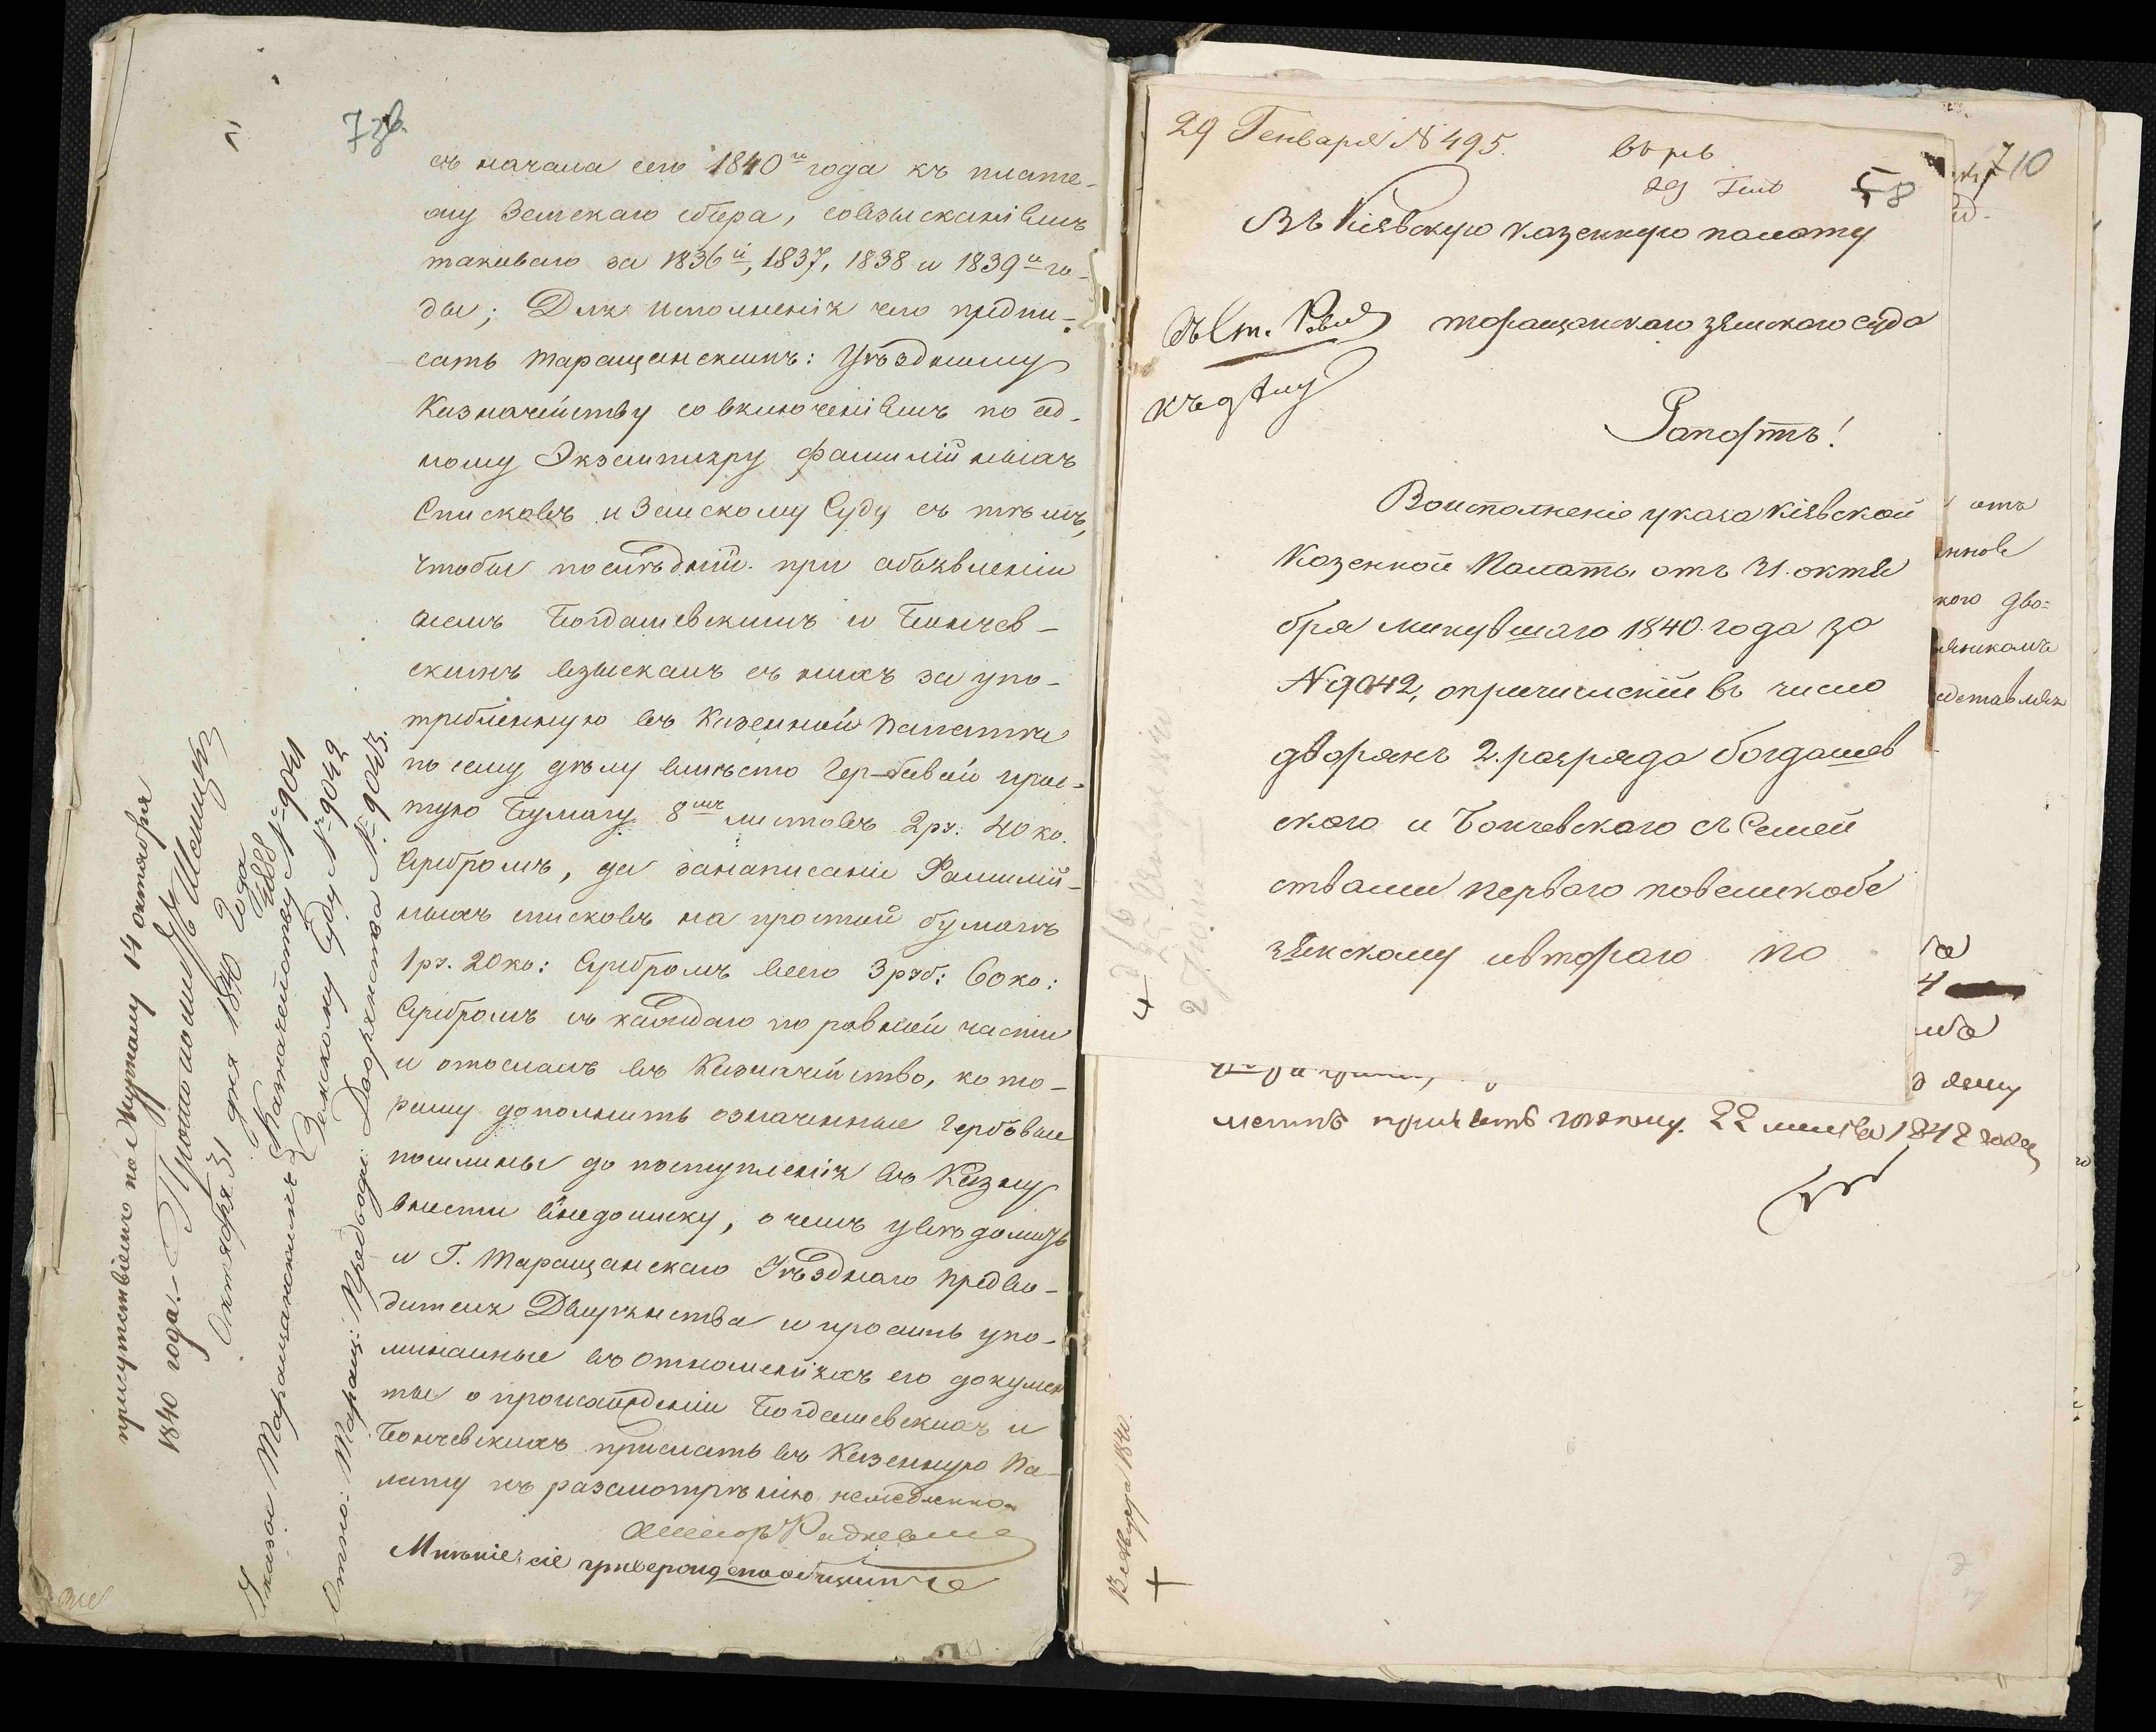 73б.
съ начала сего 1840го года къ плате-
жу Земскаго сбора, со взысканіемъ
таковаго за 1836й, 1837, 1838 и 1839й го-
ды; Для исполненія чего предпи-
сать Таращанскимъ: Уѣздному
Казначейству со включеніемъ по од-
ному Экземпляру фамилійныхъ
Списковъ и Земскому Суду съ тѣмъ,
чтобы послѣдній при объявленіи
симъ Богдашевскимъ и Бончев-
скимъ взыскалъ съ нихъ за упо-
требленную въ Казенной Палатѣ
по сему дѣлу вмѣсто Гербовой прос-
тую бумагу 8мъ листовъ 2 ру: 40 ко.
Серебромъ, да за написаніе Фамилій-
ныхъ списковъ на простой бумагѣ
1 ру. 20 ко: Серебромъ всего 3 руб: 60 ко:
Серебромъ съ каждаго по ровной части
и отослалъ въ Казначейство, кото-
рому дополнить означенные Гербовые
пошлины до поступленія въ Казну
внести въ недоимку, о чемъ увѣдомить
и Г. Таращанскаго Уѣзднаго Предво-
дителя Дворянства и просить упо-
минаемые въ отношеніяхъ его докумен
ты о происхожденіи Богдашевскихъ и
Бончевскихъ прислать въ Казенную Па-
лату къ разсмотрѣнію немедленно
Ассесоръ Радкевичъ
Мнѣніе сіе утверждено общимъ
присутствіемъ по Журналу 14 октября
1840 года.
Октября 31 дня 1840 Года
Указы Таращанскимъ Казначейству № 9041
Земскому Суду № 9042
Отно: Таращ: Предводи: Дворянства № 9043.
29 Генваря № 495.
58
710
Въ Кіевскую казенную палату
таращанскаго земскаго суда
къ дѣлу
Рапортъ!
Во исполненіе указа кіевской
Казенной Палаты отъ 31. октя
бря минувшаго 1840. года за
№ 9042, о причисленіи въ число
дворянъ 2. разряда богдашев
скаго и Бончевскаго съ Семей
ствами перваго по великобе
зянскому и втораго по
отъ
кого дво=
22 1842 года